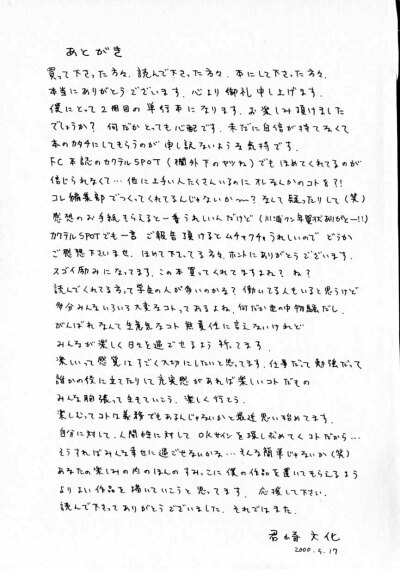 あとがき
買って下さった方々、読んで下さった方々、本にして下さった方々、
本当にありがとうございます、心より御礼申し上げます。
僕にとって2冊目の単行本になります。お楽しみ頂けました
でしょうか？ 何だかとっても心配です。未だに自信が持てなくて
本のカタチにしてもらうのが申し訳ないような気持です。
FC本誌のカクテルSPOT（欄外下のヤツね）でもほめてくれてるのが
信じられなくて…他に上手い人たくさんいるのにオレなんかのコトを？！
コレ編集部でつくってくれてるんじゃないか〜？なんて疑ったりして（笑）
感想のお手紙もらえると一番うれしいんだけど（年賀状ありがと〜！！）
カクテルSPOTでも一言 ご報告頂けるとムチャクチャうれしいので どうか
ご感想下さいませ、ほめて下さってる方々、ホントにありがとうございます。
スゴイ励みになってます。この本買ってくれてますよね？ ね？
読んでくれてる方って学生の人が多いのかな？働いてる人もいると思うけど
多分みんないろいろ大変なコトってあるよね、何だか世の中物騒だし、
がんばれなんて生意気なコト無責任に言えないけれど
みんなが楽しく日々を過ごせるよう祈ってます。
楽しいって感覚はすごく大切にしたいと思ってます。仕事だって勉強だって
誰かの役に立てたりして充実感があれば楽しいコトだもの
みんな胸張って生きていこう、楽しく行こう。
楽しむってコトは義務でもあるんじゃないかと最近思い始めてます。
自分に対して、人間性に対して OKサインを探し求めてくコトだから…
もうすればみんな幸せに過ごせないかな…そんな簡単じゃないか（笑）
あなたの楽しみの内のほんのすみっこに僕の作品を置いてもらえるよう
よりよい作品を描いていこうと思ってます。応援して下さい。
読んで下さってありがとうございました。それではまた。
文化
2000.5.17